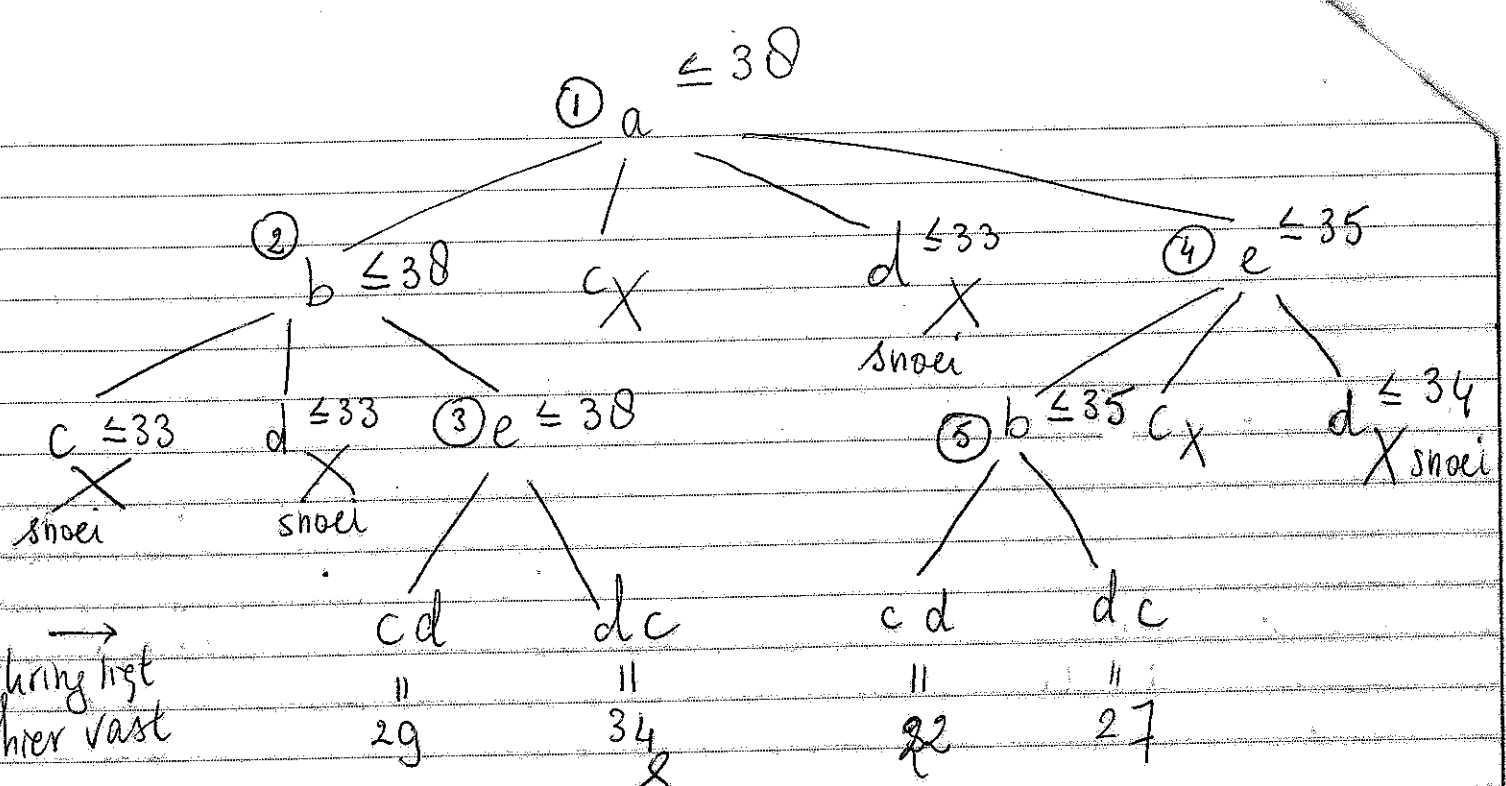 ① a ≤ 38
② b ≤ 38 c X d ≤ 33 X snoei ④ e ≤ 35
c ≤ 33 X snoei d ≤ 33 X snoei ③ e ≤ 38 ⑤ b ≤ 35 c X d ≤ 34 X snoei
→ cd dc cd dc
kring ligt = = = =
hier vast 29 34 27